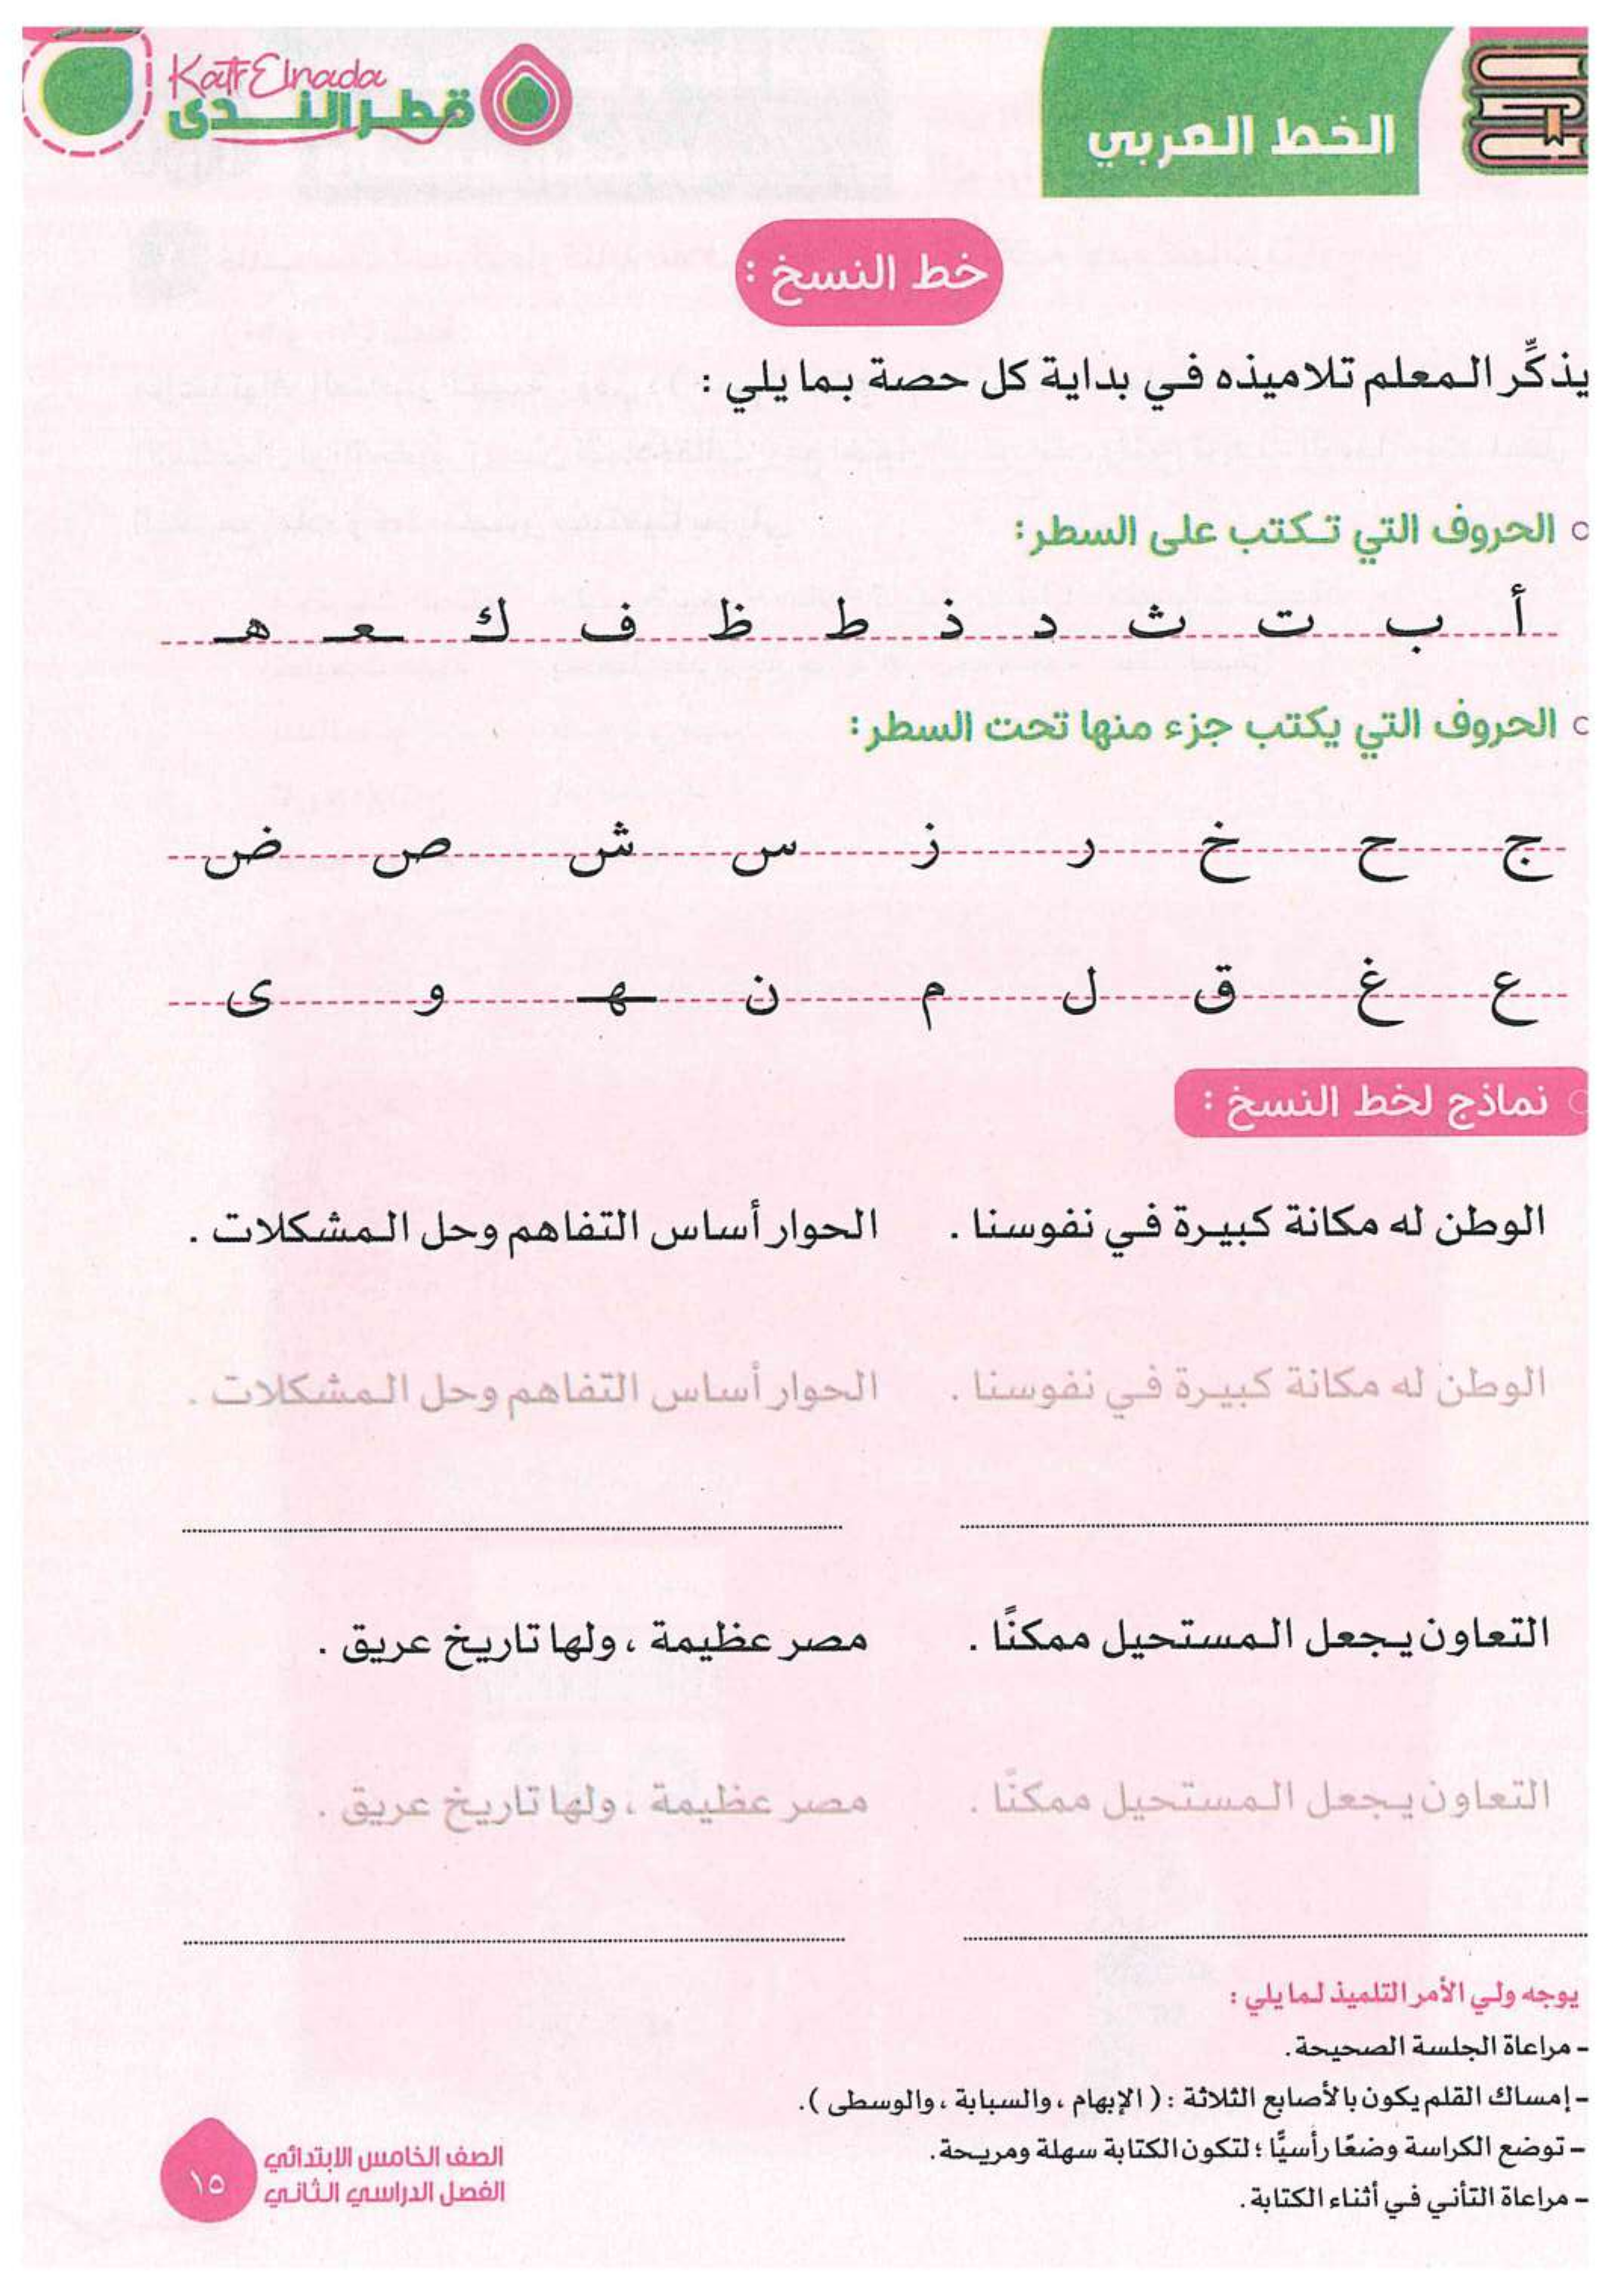 الخط العربي
Katr Elnada
قطر الندى
خط النسخ :
يذكِّر المعلم تلاميذه في بداية كل حصة بما يلي :
الحروف التي تكتب على السطر:
أ ب ت ث د ذ ط ظ ف ك ـعـ هـ
الحروف التي يكتب جزء منها تحت السطر:
ج ح خ ر ز س ش ص ض
ع غ ق ل م ن ـهـ و ى
نماذج لخط النسخ :
الوطن له مكانة كبيرة في نفوسنا . الحوار أساس التفاهم وحل المشكلات .
الوطن له مكانة كبيرة في نفوسنا . الحوار أساس التفاهم وحل المشكلات .
التعاون يجعل المستحيل ممكنًا . مصر عظيمة ، ولها تاريخ عريق .
التعاون يجعل المستحيل ممكنًا . مصر عظيمة ، ولها تاريخ عريق .
يوجه ولي الأمر التلميذ لما يلي :
- مراعاة الجلسة الصحيحة.
- إمساك القلم يكون بالأصابع الثلاثة : ( الإبهام ، والسبابة ، والوسطى ).
- توضع الكراسة وضعًا رأسيًّا ؛ لتكون الكتابة سهلة ومريحة.
- مراعاة التأني في أثناء الكتابة.
الصف الخامس الابتدائي
الفصل الدراسي الثاني
١٥